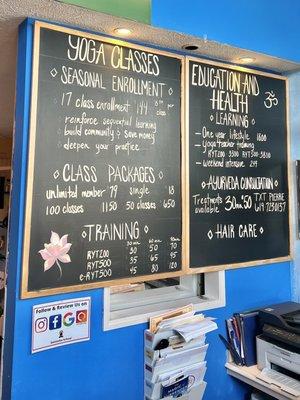 YOGA CLASSES
SEASONAL ENROLLMENT
17 class enrollment 144
reinforce sequential learning
build community & save money
deepen your practice
CLASS PACKAGES
unlimited member 79 single 18
100 classes 1150 50 classes 650
TRAINING
30 MIN. 60 MIN. 90 MIN.
RYT200 30 50 70
RYT500 35 65 95
e-RYT500 45 80 120
EDUCATION AND
HEALTH
ॐ
LEARNING
-One year lifestyle 1600
-Yoga teacher training
RYT200 3300 RYT500 3800
-Weekend intensive 249
AYURVEDA CONSULTATION
Treatments available 30 MIN 50
TXT PIERRE
HAIR CARE
Follow & Review us